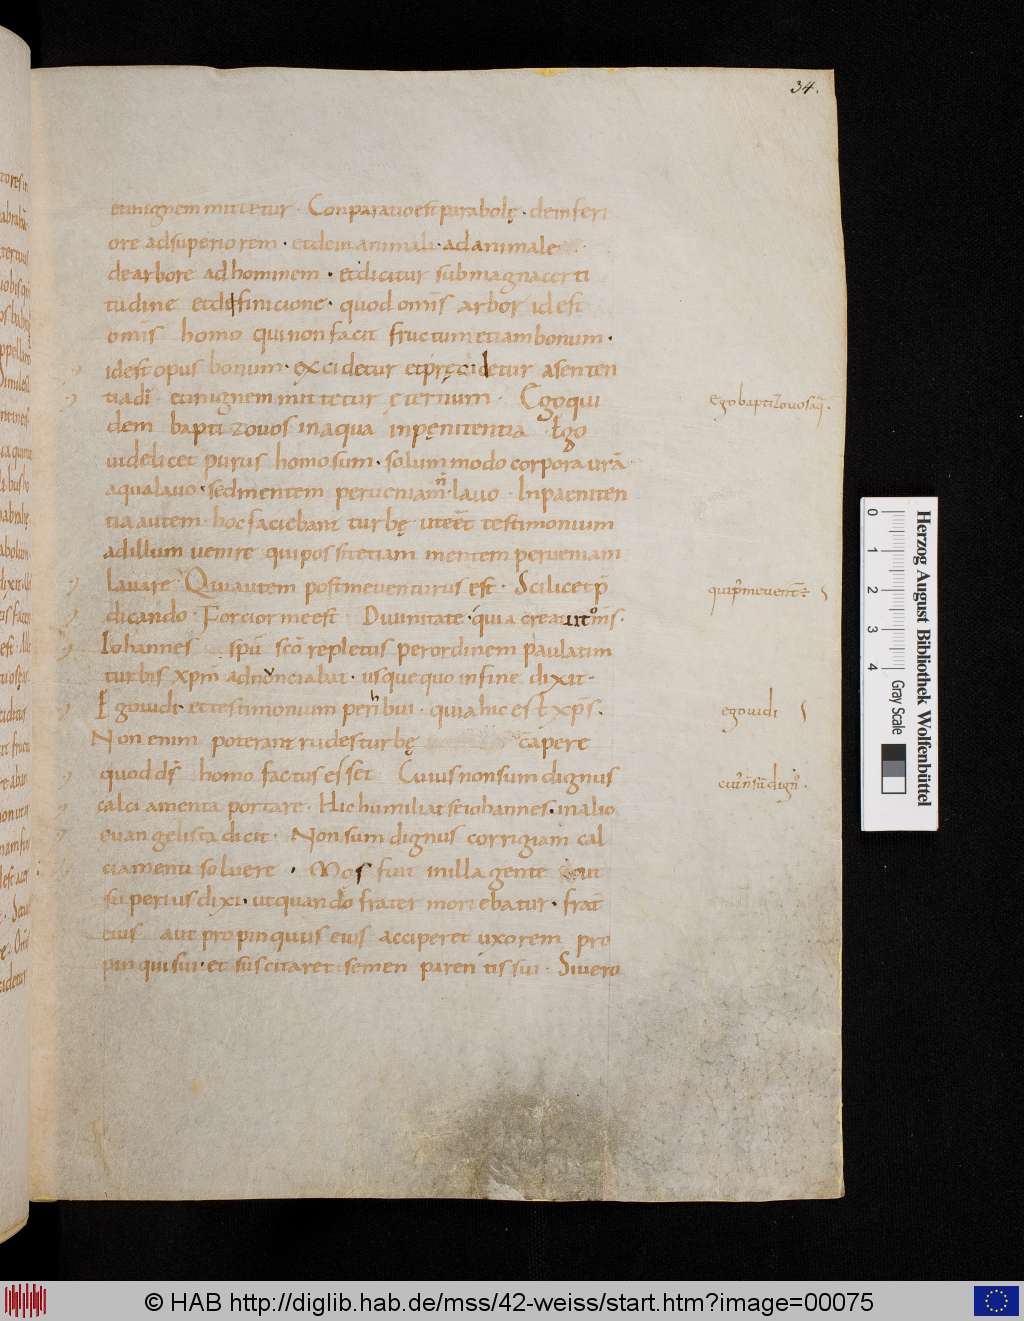 34.
et in ignem mittetur · Conparatio est parabolę · de inferi
ore ad superiorem · et de in animali · ad animale
de arbore ad hominem · et dicitur sub magna certi
tudine et definicione · quod omīs arbor id est
omīs homo qui non facit fructum etiam bonum ·
id est opus bonum · excidetur et pręcidetur a senten
tia dī · et in ignem mittetur ęternum · Ego qui
dem baptizo uos in aqua in pęnitentia · Ego
uidelicet purus homo sum · solummodo corpora urā
aqua lauo · sed mentem per ueniam n̄ lauo · In paeniten
tia autem · hoc faciebant turbę ut eēt testimonium
ad illum uenire qui possit etiam mentem per ueniam
lauare · Qui autem post me uenturus est · Scilicet p̄
dicando · Forcior me est Diuinitate · quia creator omīs ·
Iohannes spū scō repletus per ordinem paulatim
turbis xpm adnunciabat · usque quo in fine dixit ·
Ego uidi · et testimonium perhibui · quia hic est xps ·
Non enim poterant rudes turbę capere
quod dś homo factus esset Cuius non sum dignus
calciamenta portare · Hic humiliat se iohannes · in alio
euangelista dicit · Non sum dignus corrigiam cal
ciamenti soluere · Mos fuit in illa gente
superius dixi · ut quando frater moriebatur · frat̄
eius aut propinquus eius acciperet uxorem pro
pinqui sui · et suscitaret semen parentis sui · Si uero
ego baptizo uos aq̄ ·
qui p' me uent̄
ego uidi
cui' n̄ sū dign' ·
0 1 2 3 4
Gray Scale
Herzog August Bibliothek Wolfenbüttel
© HAB http://diglib.hab.de/mss/42-weiss/start.htm?image=00075